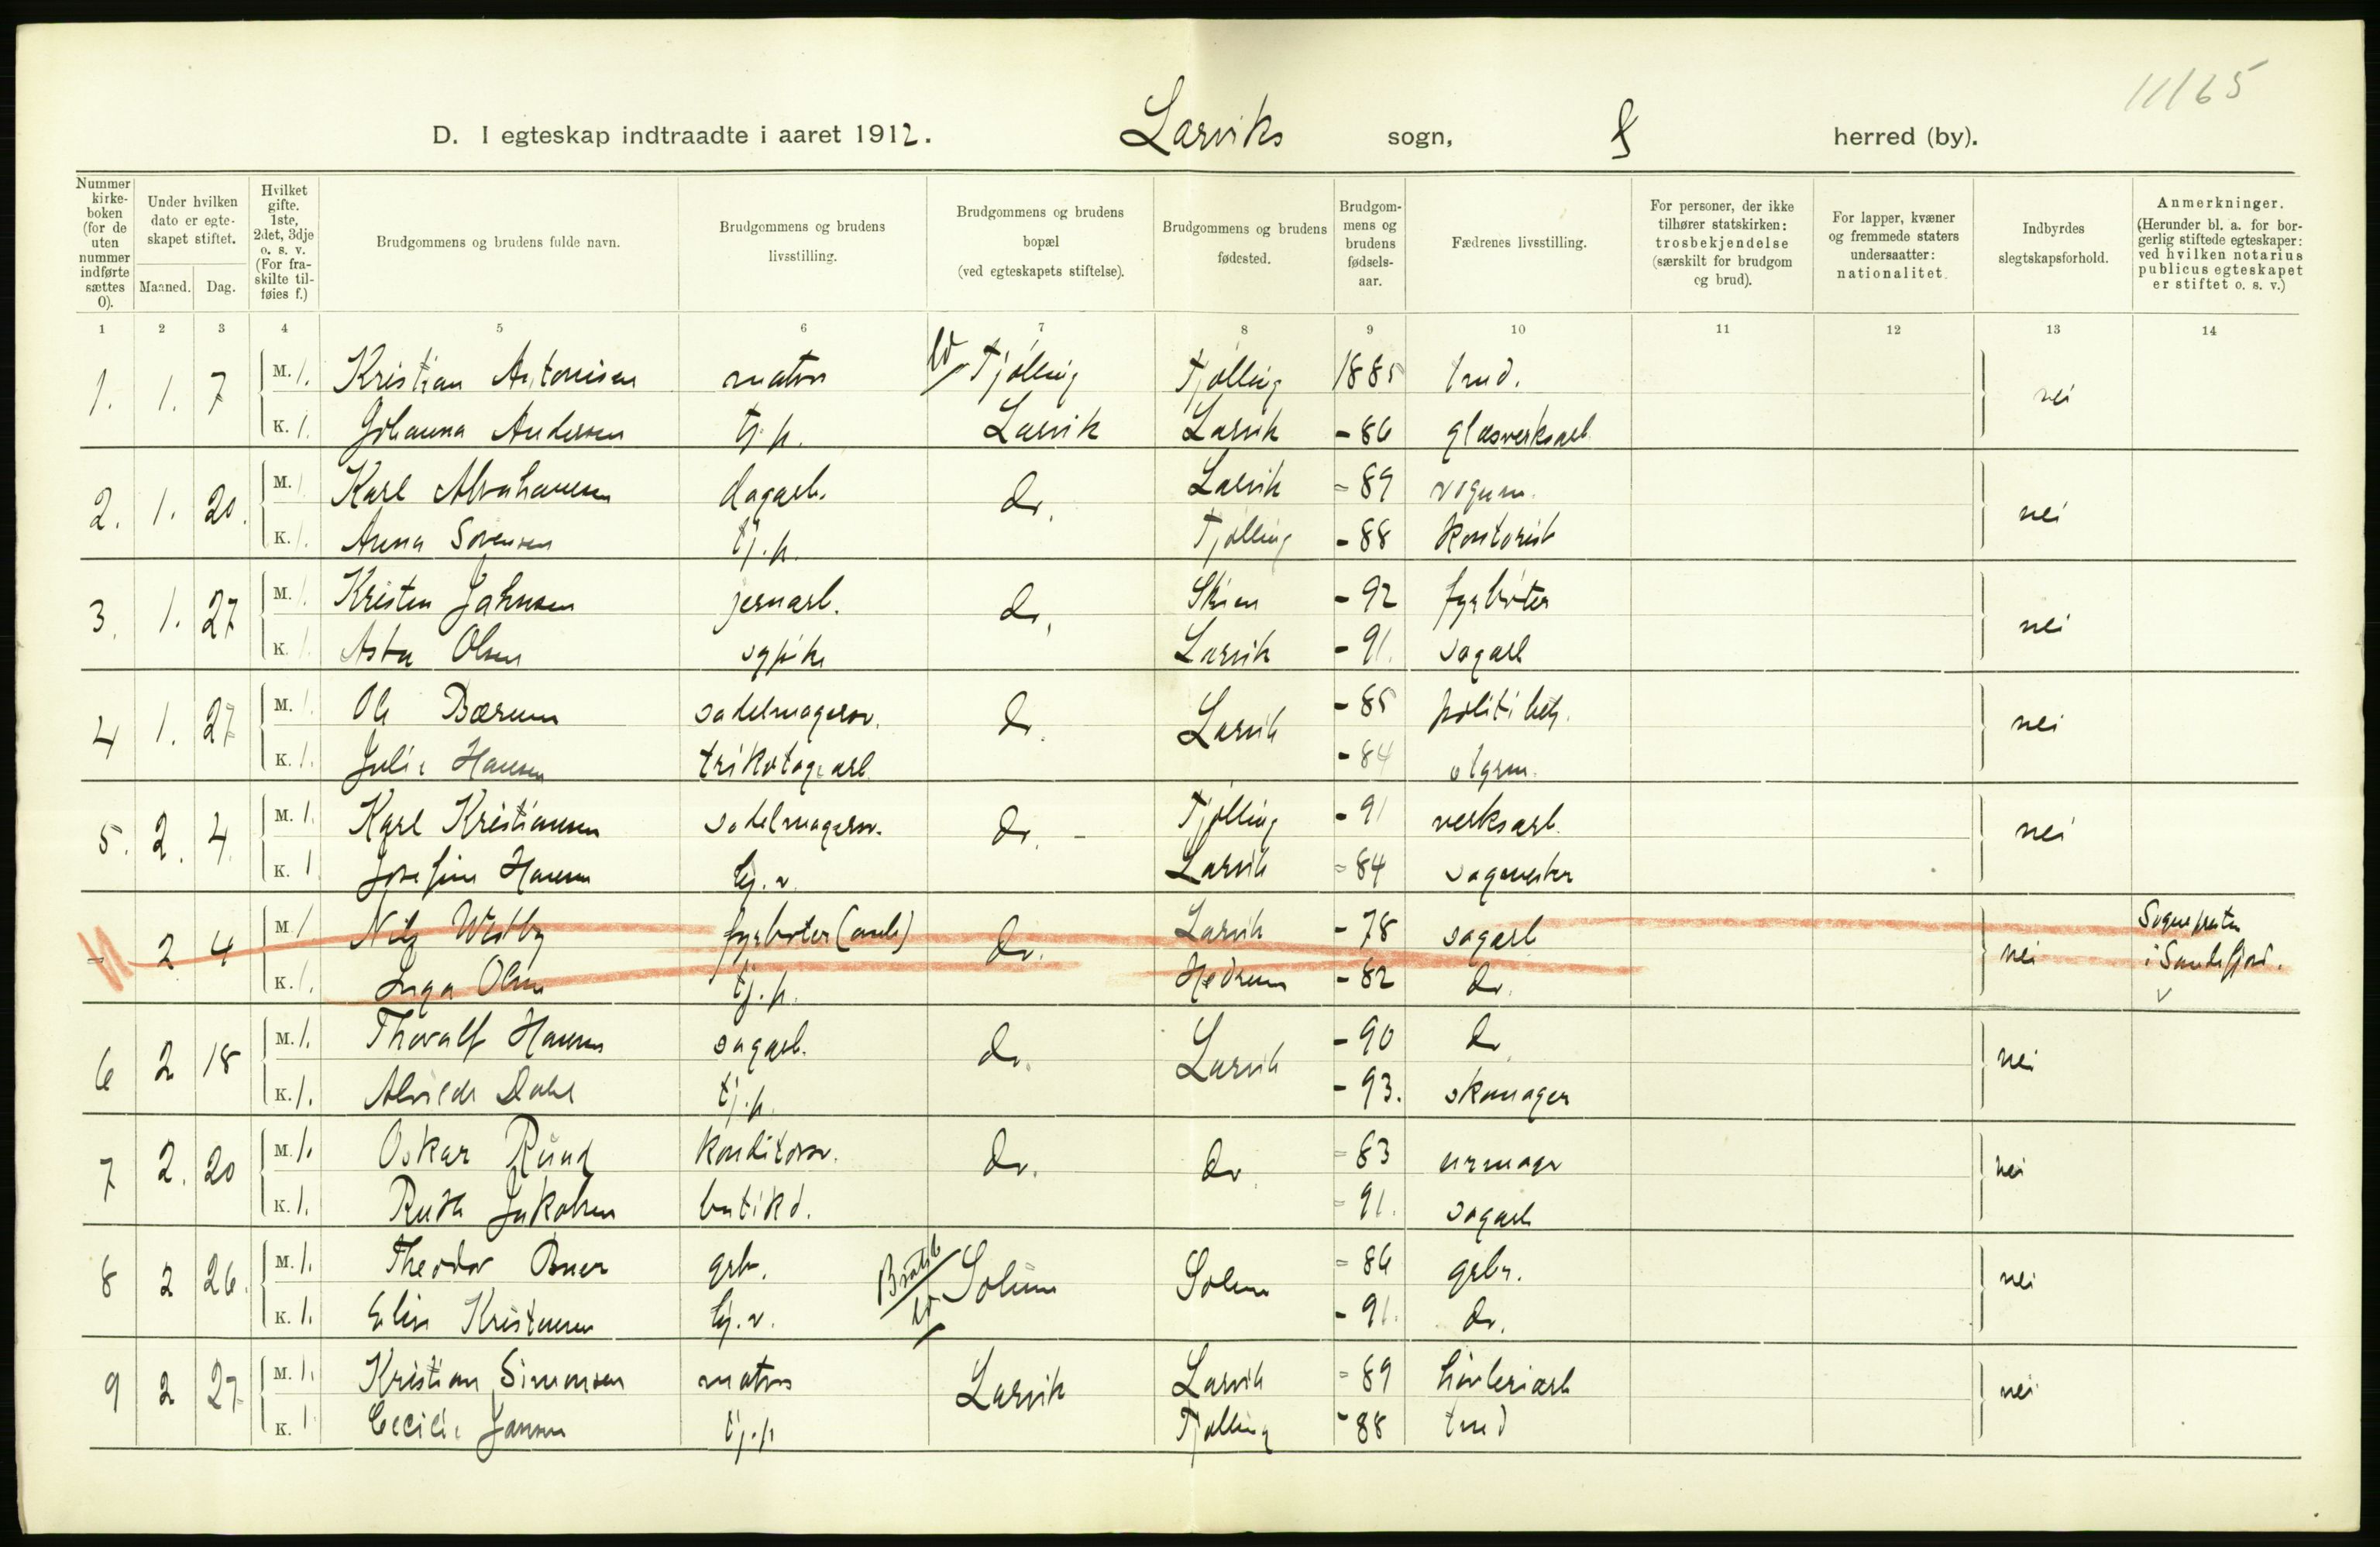 11/65
D. I egteskap indtraadte i aaret 1912. Larviks sogn, herred (by).
Nummer kirke-boken (for de uten nummer indførte sættes 0).
Under hvilken dato er egte-skapet stiftet.
Maaned. Dag.
Hvilket gifte. 1ste, 2det, 3dje o. s. v. (For fra-skilte til-føies f.)
Brudgommens og brudens fulde navn.
Brudgommens og brudens livsstilling.
Brudgommens og brudens bopæl (ved egteskapets stiftelse).
Brudgommens og brudens fødested.
Brudgom-mens og brudens fødsels-aar.
Fædrenes livsstilling.
For personer, der ikke tilhører statskirken: trosbekjendelse (særskilt for brudgom og brud).
For lapper, kvæner og fremmede staters undersaatter: nationalitet.
Indbyrdes slegtskapsforhold.
Anmerkninger. (Herunder bl. a. for bor-gerlig stiftede egteskaper: ved hvilken notarius publicus egteskapet er stiftet o. s. v.)
1 2 3 4 5 6 7 8 9 10 11 12 13 14
1. 1. 7 M. 1. Kristian Antonisen matros Tjølling Tjølling 1885 nei
K. 1. Johanna Andersen tj. p. Larvik Larvik - 86 glasverksarb.
2. 1. 20. M. 1. Karl Abrahamsen dagarb. do. Larvik - 89 vognm. nei
K. 1. Anna Sørensen tj. p. Tjølling - 88 kontorist
3. 1. 27 M. 1. Kristen Johnsen jernarb. do. Skien - 92 fyrbøter nei
K. 1. Asta Olsen sypike Larvik - 91. sagarb
4 1. 27 M. 1. Ole Bærum sadelmagersv. do. Larvik - 85 politibetj. nei
K. 1. Julie Hansen trikotagearb - 84
5. 2. 4. M. 1. Karl Kristiansen sadelmagersv. do. - Tjølling - 91 verksarb. nei
K. 1 Josefine Hansen Larvik - 84 sagmester
- 2 4 M. 1 Nils Westby fyrbøter do. Larvik - 78 sagarb nei Sognepresten
K. 1. Inga Olsen tj. p. Hedrum - 82 do. i Sandefjord.
6 2 18 M. 1. Thoralf Hansen sagarb. do. Larvik - 90 do nei
K. 1. Alvilde Dahl tj. p. - 93. skomager
7 2. 20 M. 1. Oskar konditorsv. do. do. - 83 urmager nei
K. 1. Ruth Jakobsen butikd. - 91. sagarb
8 2 26. M. 1. Theodor gbr. Solum Solum - 86 gbr. nei
K. 1. Elise Kristensen - 91. do.
9 2 27 M. 1. Kristian Simonsen matros Larvik Larvik - 89 høvleriarb nei
K. 1 Cecilie Jansen tj. p Tjølling - 88